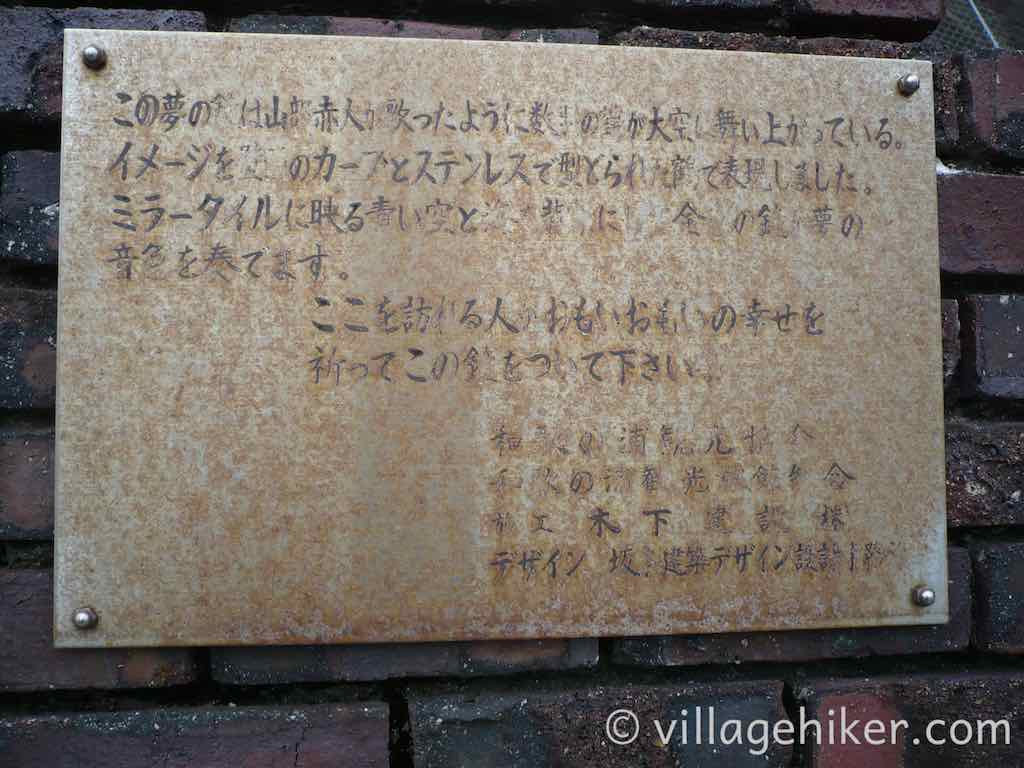 この夢の鐘は山部赤人が歌ったように数 の鶴が大空に舞い上がっている。
イメージを のカーブとステンレスで型どられた鶴で表現しました。
ミラータイルに映る青い空と に 金 の鐘が夢の
音色を奏でます。
ここを訪れる人がおもいおもいの幸せを
祈ってこの鐘をついて下さい。
和歌の浦観光協会
和歌の浦観光旅館組合
施工 木下建設 ㈱
デザイン 坂 建築デザイン設計
© villagehiker.com